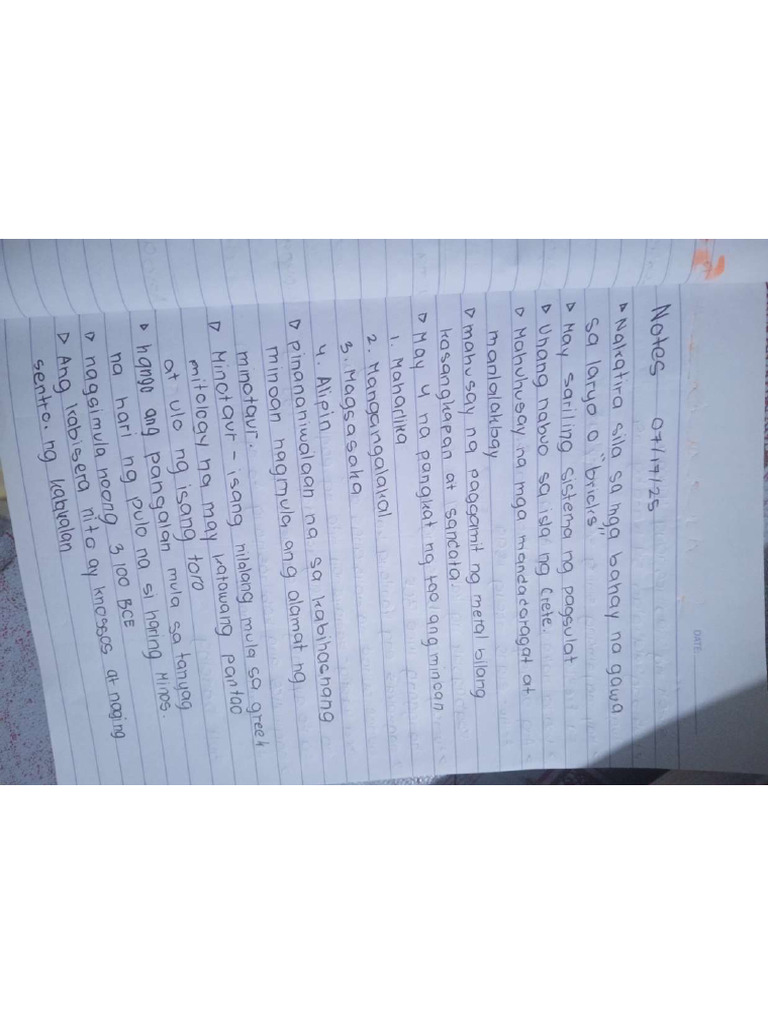 DATE:
Notes 07/17/25
▷ Nakatira sila sa mga bahay na gawa
sa laryo o "bricks"
▷ May sariling sistema ng pagsulat
▷ Unang nabuo sa isla ng Crete.
▷ Mahuhusay na mga mandaragat at
manlalakbay
▷ mahusay ng paggamit ng metal bilang
kasangkapan at sandata.
▷ May 4 na pangkat ng tao ang minoan
1. Maharlika
2. Mangangalakal
3. Magsasaka
4. Alipin
▷ pinananiwalaan na sa kabihasnang
minoan nagmula ang alamat ng
minotaur.
▷ Minotaur - isang nilalang mula sa greek
mitology na may katawang pantao
at ulo ng isang toro
▷ hango ang pangalan mula sa tanyag
na hari ng pulo na si haring Minos.
▷ nagsimula noong 3100 BCE
▷ Ang kabisera nito ay knossos at naging
sentro. ng kabyalan